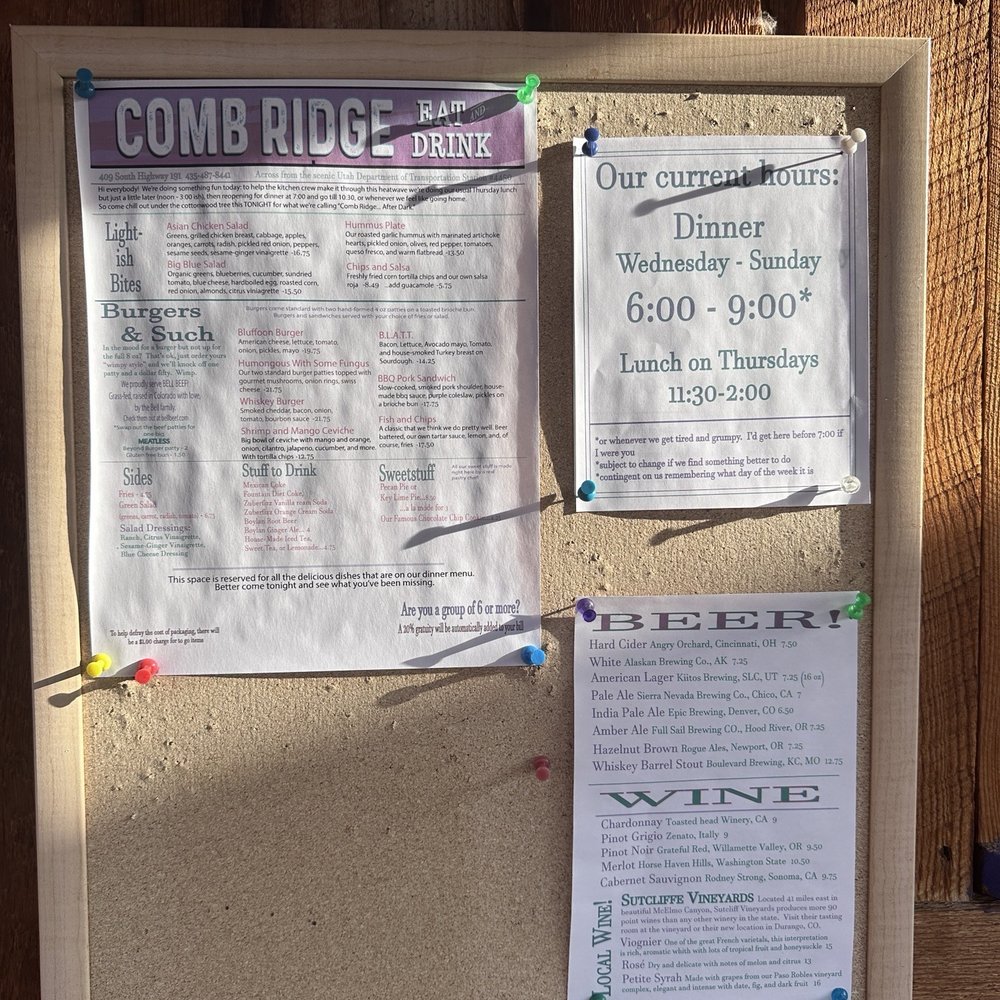 COMB RIDGE EAT AND DRINK
409 South Highway 191 435-487-8441 Across from the scenic Utah Department of Transportation Station #4460
Hi everybody! We're doing something fun today: to help the kitchen crew make it through this heatwave we're doing our usual Thursday lunch
but just a little later (noon - 3:00 ish), then reopening for dinner at 7:00 and go til 10:30, or whenever we feel like going home.
So come chill out under the cottonwood tree this TONIGHT for what we're calling "Comb Ridge... After Dark."
Light-
ish
Bites
Asian Chicken Salad
Greens, grilled chicken breast, cabbage, apples,
oranges, carrots, radish, pickled red onion, peppers,
sesame seeds, sesame-ginger vinaigrette -16.75
Big Blue Salad
Organic greens, blueberries, cucumber, sundried
tomato, blue cheese, hardboiled egg, roasted corn,
red onion, almonds, citrus viniagrette -15.50
Hummus Plate
Our roasted garlic hummus with marinated artichoke
hearts, pickled onion, olives, red pepper, tomatoes,
queso fresco, and warm flatbread -13.50
Chips and Salsa
Freshly fried corn tortilla chips and our own salsa
roja -8.49 ...add guacamole -5.75
Burgers
& Such
Burgers come standard with two hand-formed 4 oz patties on a toasted brioche bun.
Burgers and sandwiches served with your choice of fries or salad.
In the mood for a burger but not up for
the full 8 oz? That's ok, just order yours
"wimpy style" and we'll knock off one
patty and a dollar fifty. Wimp.
We proudly serve BELL BEEF!
Grass-fed, raised in Colorado with love,
by the Bell family.
Check them out at bellbeef.com
*Swap out the beef patties for
one big
MEATLESS
Beyond Burger patty - 2
Gluten free bun - 1.50
Bluffoon Burger
American cheese, lettuce, tomato,
onion, pickles, mayo -19.75
Humongous With Some Fungus
Our two standard burger patties topped with
gourmet mushrooms, onion rings, swiss
cheese -21.75
Whiskey Burger
Smoked cheddar, bacon, onion,
tomato, bourbon sauce -21.75
Shrimp and Mango Ceviche
Big bowl of ceviche with mango and orange,
onion, cilantro, jalapeno, cucumber, and more.
With tortilla chips -12.75
B.L.A.T.T.
Bacon, Lettuce, Avocado mayo, Tomato,
and house-smoked Turkey breast on
Sourdough. -14.25
BBQ Pork Sandwich
Slow-cooked, smoked pork shoulder, house-
made bbq sauce, purple coleslaw, pickles on
a brioche bun -17.75
Fish and Chips
A classic that we think we do pretty well. Beer
battered, our own tartar sauce, lemon, and, of
course, fries -17.50
Sides
Fries - 4.75
Green Salad
(greens, carrot, radish, tomato) - 6.75
Salad Dressings:
Ranch, Citrus Vinaigrette,
Sesame-Ginger Vinaigrette,
Blue Cheese Dressing
Stuff to Drink
Mexican Coke
Fountain Diet Coke
Zuberfizz Vanilla ream Soda
Zuberfizz Orange Cream Soda
Boylan Root Beer
Boylan Ginger Ale... 4
House-Made Iced Tea,
Sweet Tea, or Lemonade...4.75
Sweetstuff
All our sweet stuff is made
right here by a real
pastry chef
Pecan Pie or
Key Lime Pie...8.50
...a la mode for 3
Our Famous Chocolate Chip
This space is reserved for all the delicious dishes that are on our dinner menu.
Better come tonight and see what you've been missing.
Are you a group of 6 or more?
A 20% gratuity will be automatically added to your bill
To help defray the cost of packaging, there will
be a $1.00 charge for to go items
Our current hours:
Dinner
Wednesday - Sunday
6:00 - 9:00*
Lunch on Thursdays
11:30-2:00
*or whenever we get tired and grumpy. I'd get here before 7:00 if
I were you
*subject to change if we find something better to do
*contingent on us remembering what day of the week it is
BEER!
Hard Cider Angry Orchard, Cincinnati, OH 7.50
White Alaskan Brewing Co., AK 7.25
American Lager Kiitos Brewing, SLC, UT 7.25 (16 oz)
Pale Ale Sierra Nevada Brewing Co., Chico, CA 7
India Pale Ale Epic Brewing, Denver, CO 6.50
Amber Ale Full Sail Brewing CO., Hood River, OR 7.25
Hazelnut Brown Rogue Ales, Newport, OR 7.25
Whiskey Barrel Stout Boulevard Brewing, KC, MO 12.75
WINE
Chardonnay Toasted head Winery, CA 9
Pinot Grigio Zenato, Itally 9
Pinot Noir Grateful Red, Willamette Valley, OR 9.50
Merlot Horse Haven Hills, Washington State 10.50
Cabernet Sauvignon Rodney Strong, Sonoma, CA 9.75
LOCAL WINE!
SUTCLIFFE VINEYARDS Located 41 miles east in
beautiful McElmo Canyon, Sutcliff Vineyards produces more 90
point wines than any other winery in the state. Visit their tasting
room at the vineyard or their new location in Durango, CO.
Viognier One of the great French varietals, this interpretation
is rich, aromatic whith with lots of tropical fruit and honeysuckle 15
Rosé Dry and delicate with notes of melon and citrus 13
Petite Syrah Made with grapes from our Paso Robles vineyard
complex, elegant and intense with date, fig, and dark fruit 16